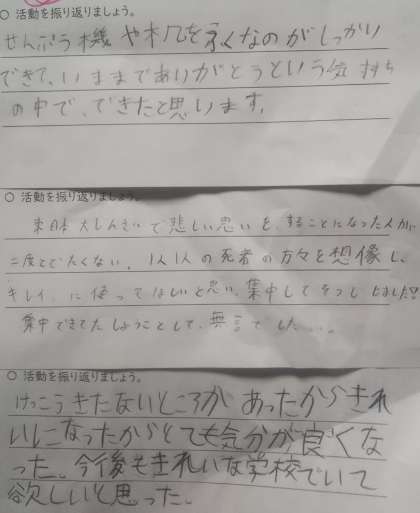 ○ 活動を振り返りましょう。
せんぷう機や木几を ふくなのがしっかり
できて、いままでありがとうという気持ち
の中で、できたと思います。
○ 活動を振り返りましょう。
東日本大しんさいで悲しい思いを、することになった人が
二度とでたくない。1人1人の死者の方々を想像し、
キレイ に使ってほしいと思い、集中してそうじしました
集中できてた しょうことして、無言でした...。
○ 活動を振り返りましょう。
けっこうきたないところが あったからきれ
いになったからとても気分が良くな
った。今後もきれいな学校でいて
欲しいと思った。